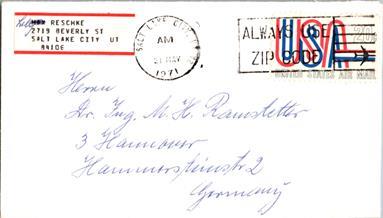 RESCHKE
2719 BEVERLY ST
SALT LAKE CITY UT
84106
SALT LAKE CITY
AM
21 MAY
1971
ALWAYS USE
ZIP CODE
USA
UNITED STATES AIR MAIL
Herrn
Dr. Ing. M. H. Ramstetter
3 Hannover
Hammersteinstr 2
Germany